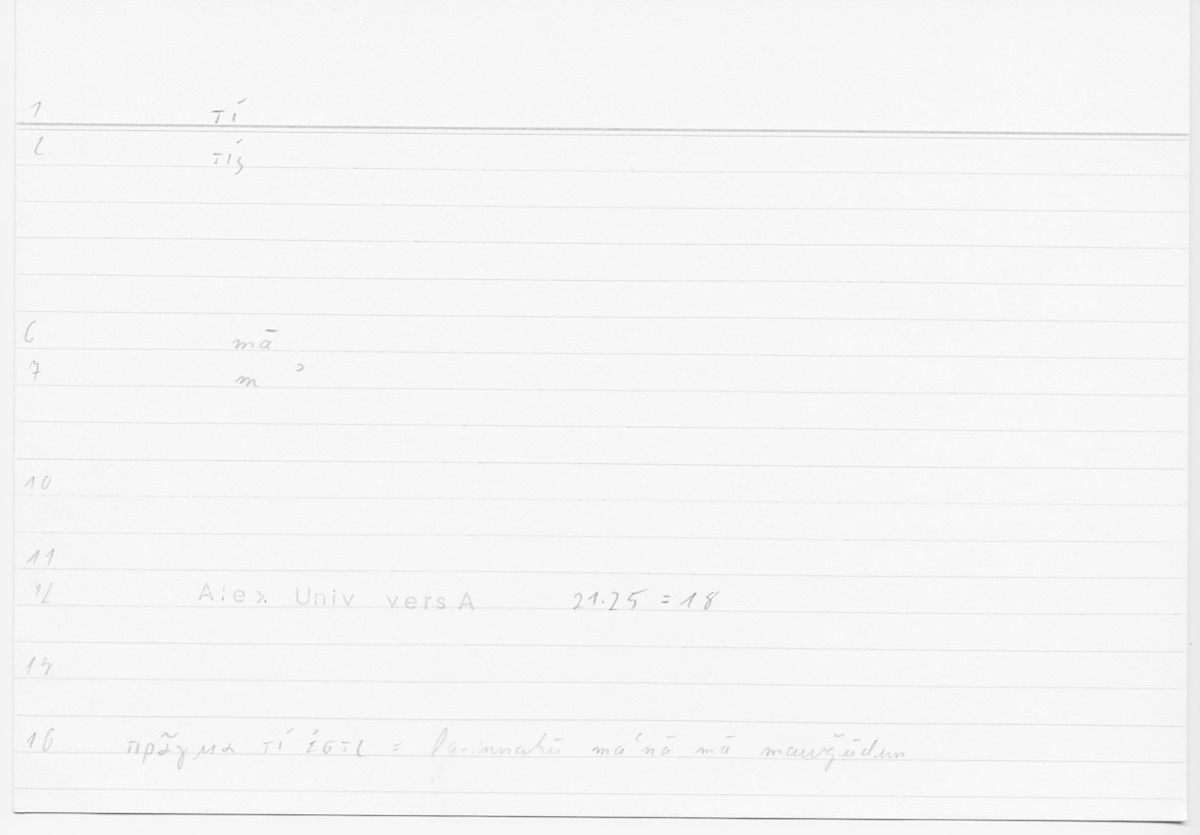 1 τί
2 τίς
6 mā
7 m ʾ
10
11
12 Alex Univ vers A 21.25 = 18
14
16 πρᾶγμα τί ἐστι = fa-innahū maʿnā mā mawǧūdun